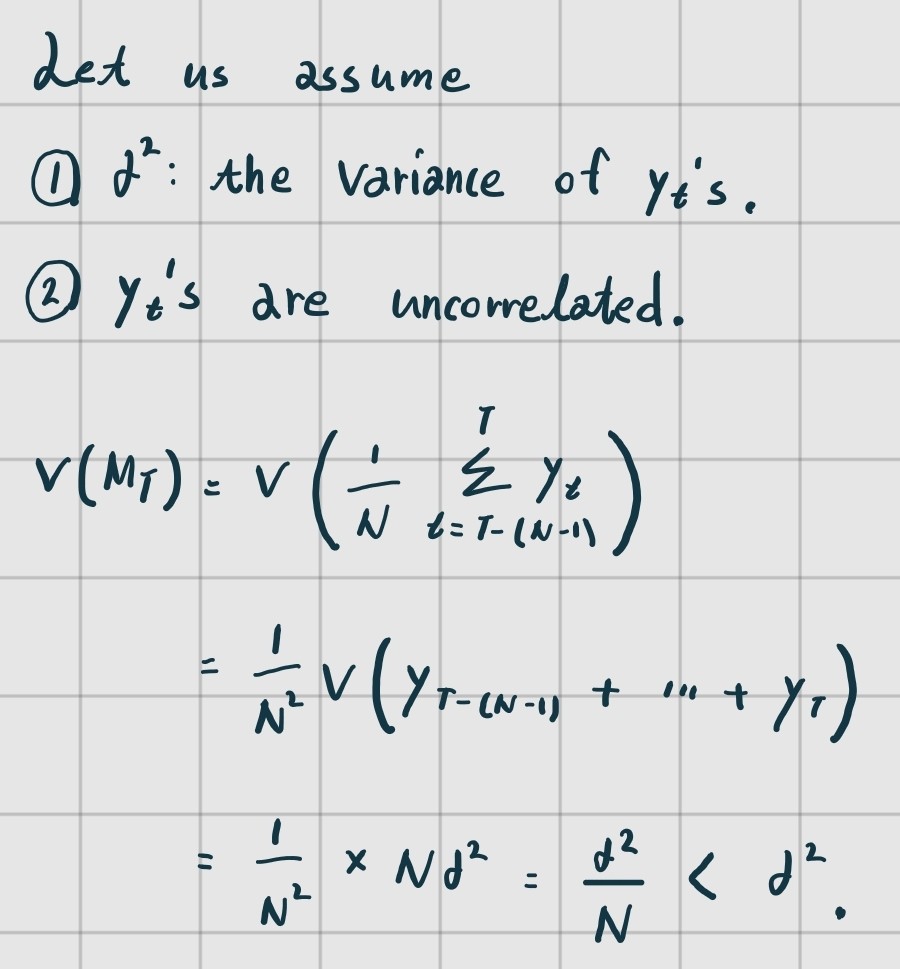 Let us assume
① σ²: the variance of yₜ's.
② yₜ's are uncorrelated.
V(M_T) = V(1/N ∑_{t=T-(N-1)}^{T} yₜ)
= 1/N² V(y_{T-(N-1)} + ... + y_T)
= 1/N² × Nσ² = σ²/N < σ².